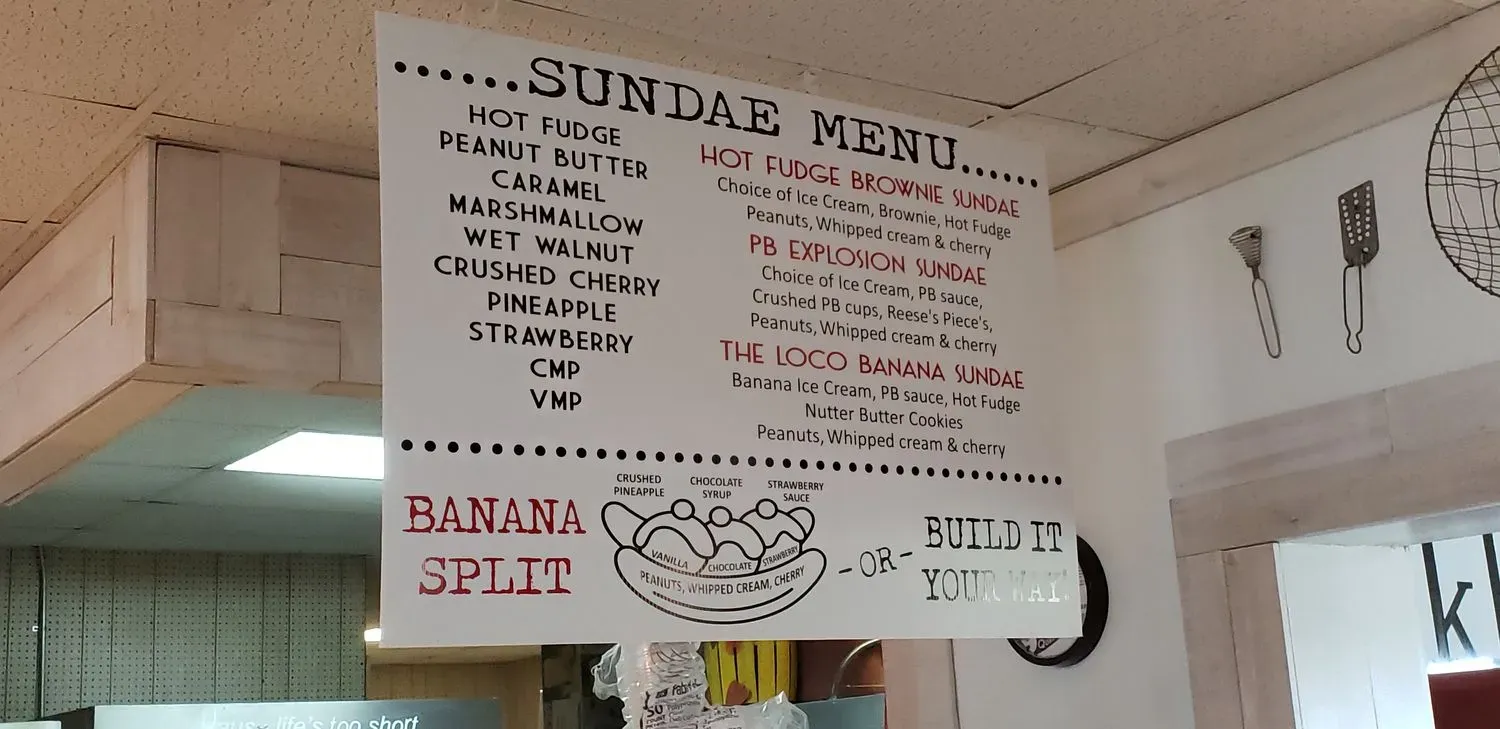 ......SUNDAE MENU......
HOT FUDGE
PEANUT BUTTER
CARAMEL
MARSHMALLOW
WET WALNUT
CRUSHED CHERRY
PINEAPPLE
STRAWBERRY
CMP
VMP
HOT FUDGE BROWNIE SUNDAE
Choice of Ice Cream, Brownie, Hot Fudge
Peanuts, Whipped cream & cherry
PB EXPLOSION SUNDAE
Choice of Ice Cream, PB sauce,
Crushed PB cups, Reese's Piece's,
Peanuts, Whipped cream & cherry
THE LOCO BANANA SUNDAE
Banana Ice Cream, PB sauce, Hot Fudge
Nutter Butter Cookies
Peanuts, Whipped cream & cherry
BANANA
SPLIT
CRUSHED
PINEAPPLE
CHOCOLATE
SYRUP
STRAWBERRY
SAUCE
VANILLA
CHOCOLATE
STRAWBERRY
PEANUTS, WHIPPED CREAM, CHERRY
-OR-
BUILD IT
YOUR WAY!
life's too short